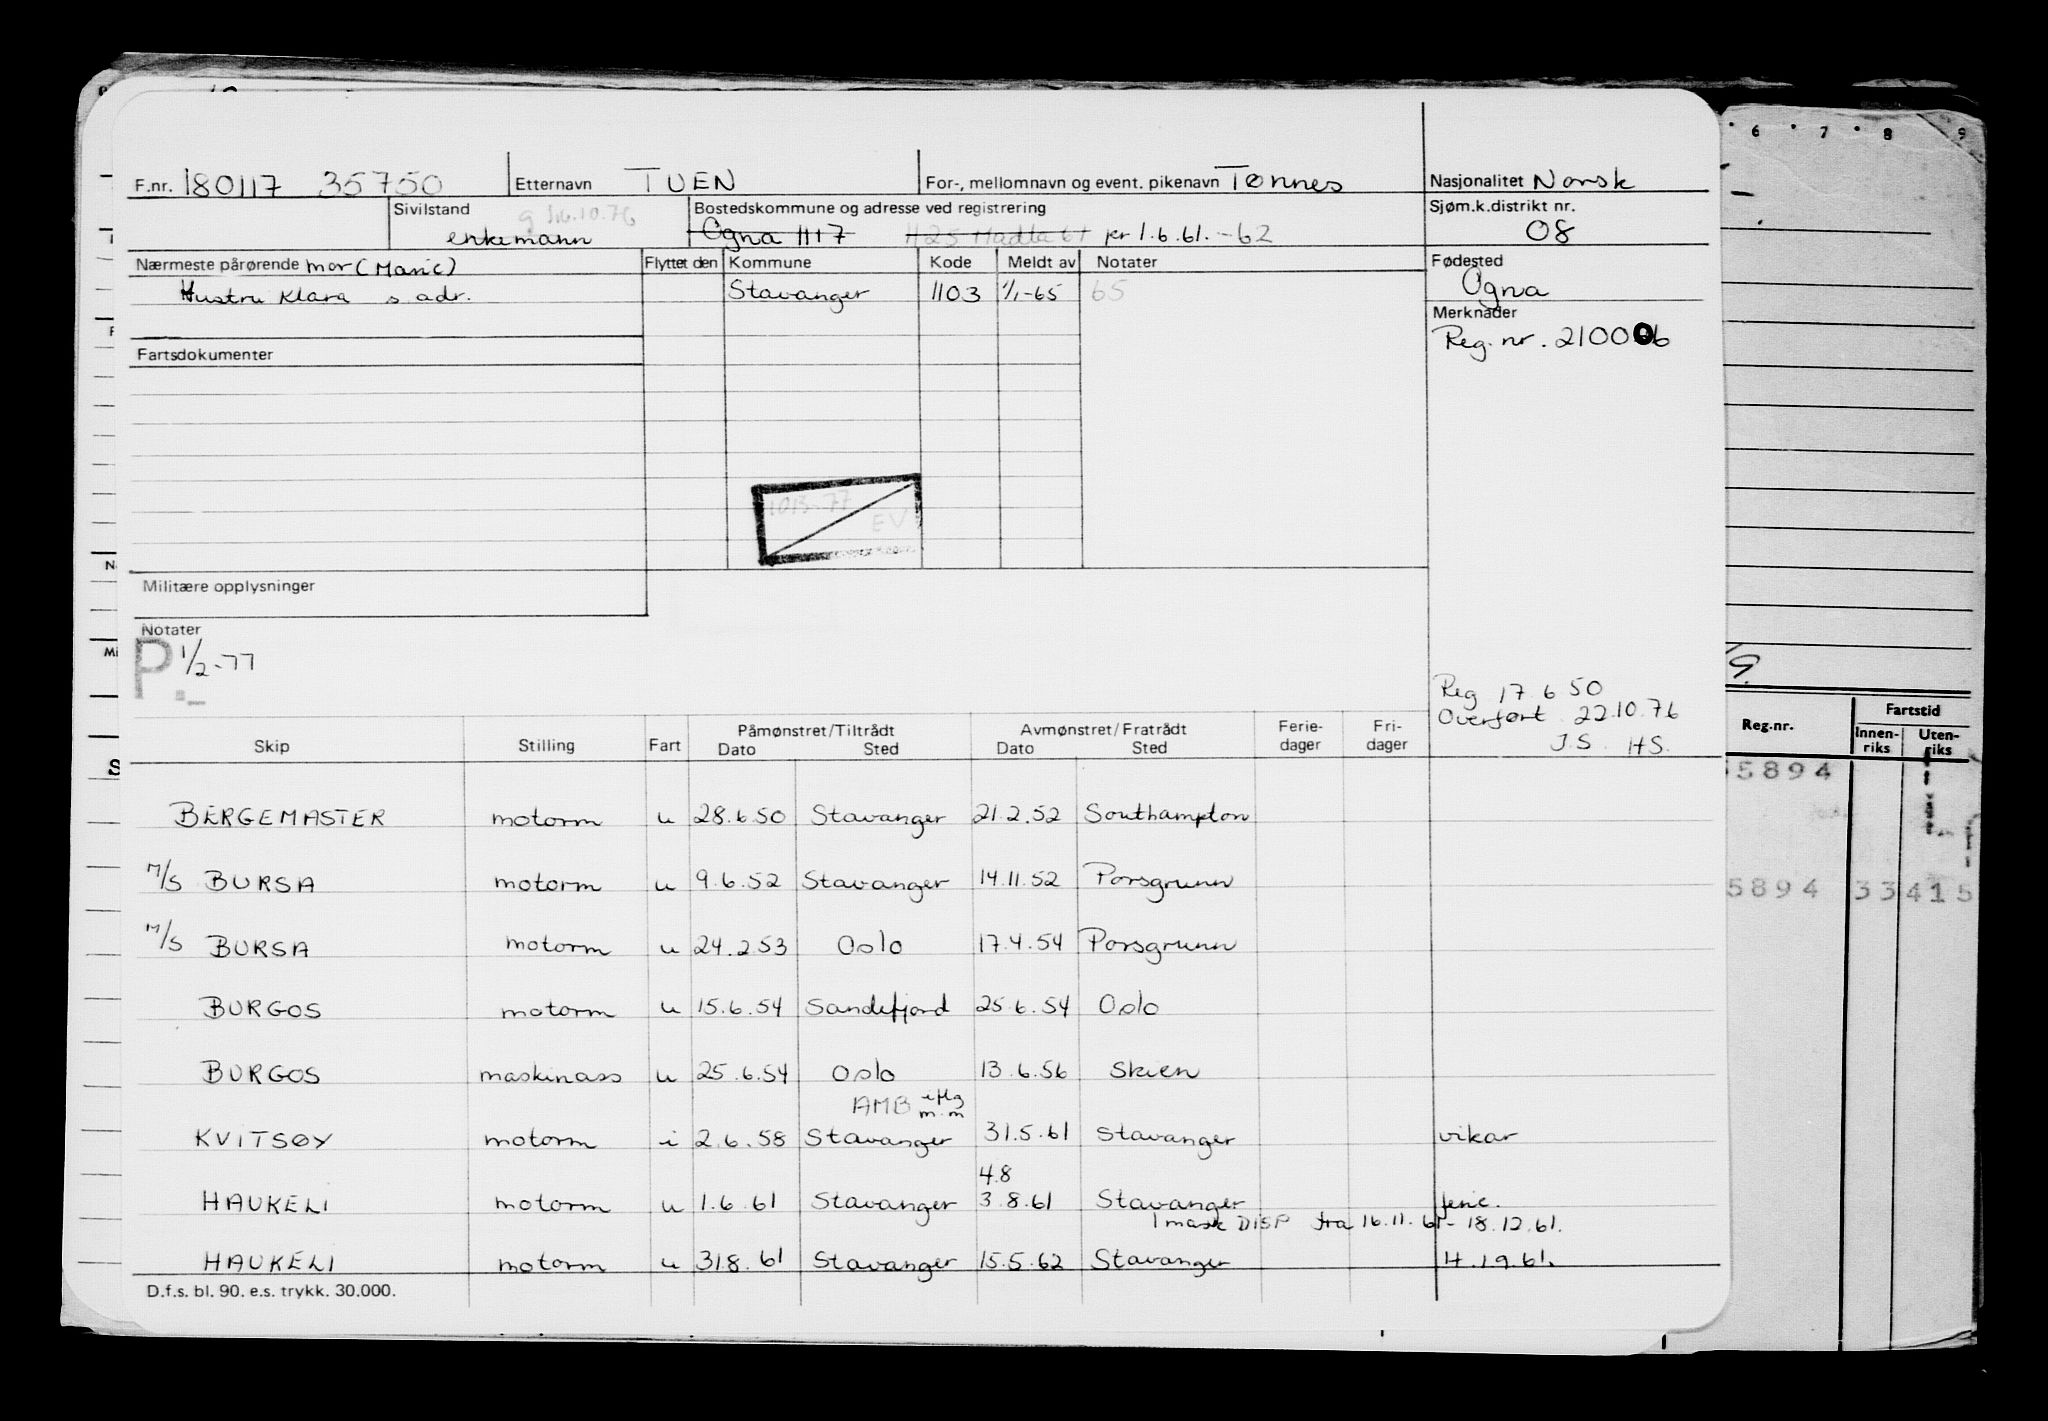 F.nr. 180117 35750 Etternavn TUEN For-, mellomnavn og event. pikenavn Tønnes Nasjonalitet Norsk
Sivilstand g 16.10.76 Bostedskommune og adresse ved registrering Sjøm.k.distrikt nr.
enkemann Ogna 1117 1125 Madla 61 pr 1.6.61.-62 08
Nærmeste pårørende mor (Marie) Flyttet den Kommune Kode Meldt av Notater Fødested
Hustru Klara s adr. Stavanger 1103 1/1-65 65 Ogna
Merknader
Reg. nr. 210006
Fartsdokumenter
1013-77
EV
Militære opplysninger
Notater
P. 1/2-77
Reg 17.6 50
Overført 22.10.76
J.S. HS.
Skip Stilling Fart Påmønstret/Tiltrådt Dato Sted Avmønstret/Fratrådt Dato Sted Ferie-dager Fri-dager
BERGEMASTER motorm u 28.6.50 Stavanger 21.2.52 Southampton
M/S BURSA motorm u 9.6.52 Stavanger 14.11.52 Porsgrunn
M/S BURSA motorm u 24.2.53 Oslo 17.4.54 Porsgrunn
BURGOS motorm u 15.6.54 Sandefjord 25.6.54 Oslo
BURGOS maskinass u 25.6.54 Oslo 13.6.56 Skien
AMB iflg m.m
KVITSØY motorm i 2.6.58 Stavanger 31.5.61 Stavanger vikar
4.8
HAUKELI motorm u 1.6 61 Stavanger 3.8.61 Stavanger ferie.
1 mask DISP fra 16.11.61- 18.12.61.
HAUKELI motorm u 31.8.61 Stavanger 15.5.62 Stavanger
D.f.s. bl. 90. e.s. trykk. 30.000.
6 7 8 9
Reg.nr. Fartstid
Innen-riks Uten-riks
5894
5894 33415